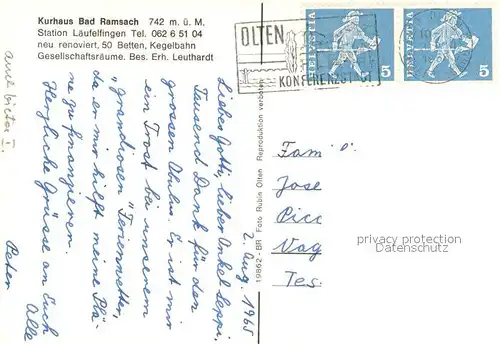 Kurhaus Bad Ramsach 742 m. ü. M.
Station Läufelfingen Tel. 062 6 51 04
neu renoviert, 50 Betten, Kegelbahn
Gesellschaftsräume. Bes. Erh. Leuthardt
OLTEN
KONFERENZ
HELVETIA
5
HELVETIA
5
2. Aug. 1965
Liebes Gotti, lieber Onkel Seppi,
Tausend Dank für den
grossen Obulus. Er ist mir
ein Trost bei unserem
"grandiosen" Ferienwetter,
da er mir hilft meine Plä-
ne zu finanzieren.
Herzliche Grüsse an Euch
Alle
Peter
19862 - BR Foto Rubin Olten Reproduktion verboten
Fam
Jose
Picc
Vag
Tes.
privacy protection
Datenschutz